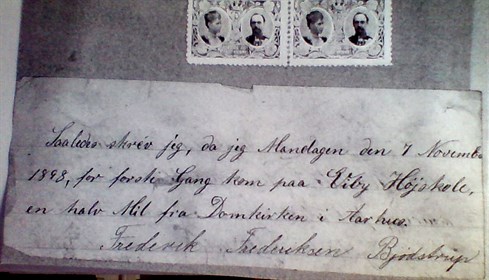 Saaledes skrev jeg, da jeg Mandagen den 7 Novembe
1898, for første Gang kom paa Viby Højskole,
en halv Mil fra Domkirken i Aarhus.
Frederik Frederiksen Bjødstrup